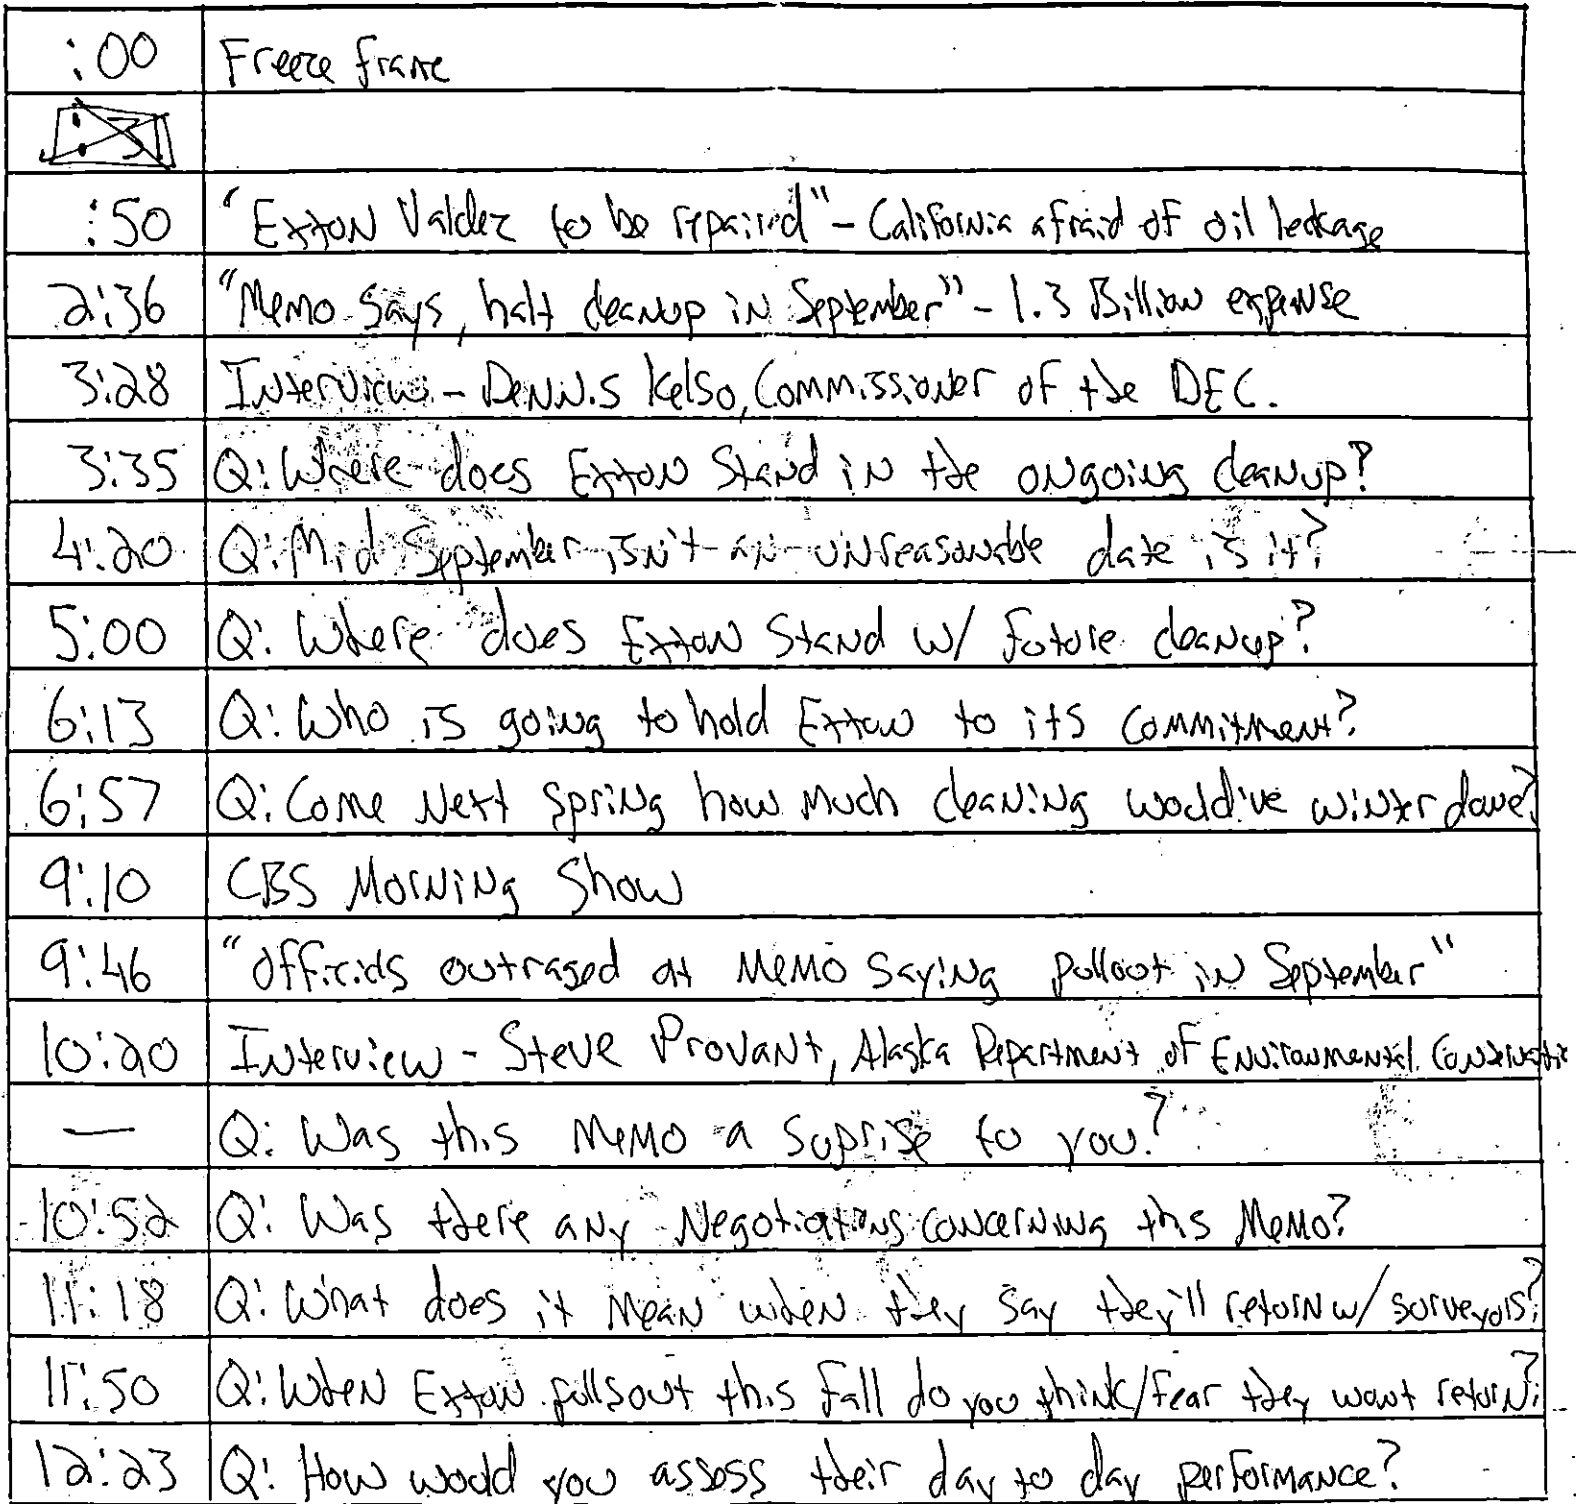 :00 Freeze frame
:50 "Exxon Valdez to be repaired" - California afraid of oil leakage
2:36 "Memo says, halt cleanup in September" - 1.3 Billion expense
3:28 Interview - Dennis Kelso, Commissioner of the DEC.
3:35 Q: Where does Exxon Stand in the ongoing cleanup?
4:20 Q: Mid September isn't an unreasonable date is it?
5:00 Q: Where does Exxon Stand w/ future cleanup?
6:13 Q: Who is going to hold Exxon to its commitment?
6:57 Q: Come Next spring how much cleaning would've winter done?
9:10 CBS Morning Show
9:46 "Officials outraged at Memo saying pullout in September"
10:20 Interview - Steve Provant, Alaska Department of Environmental Conservatio
— Q: Was this memo a suprise to you?
10:52 Q: Was there any Negotiations concerning this Memo?
11:18 Q: What does it mean when they say they'll return w/ surveyors?
11:50 Q: When Exxon pullsout this fall do you think/fear they wont return?
12:23 Q: How would you assess their day to day performance?